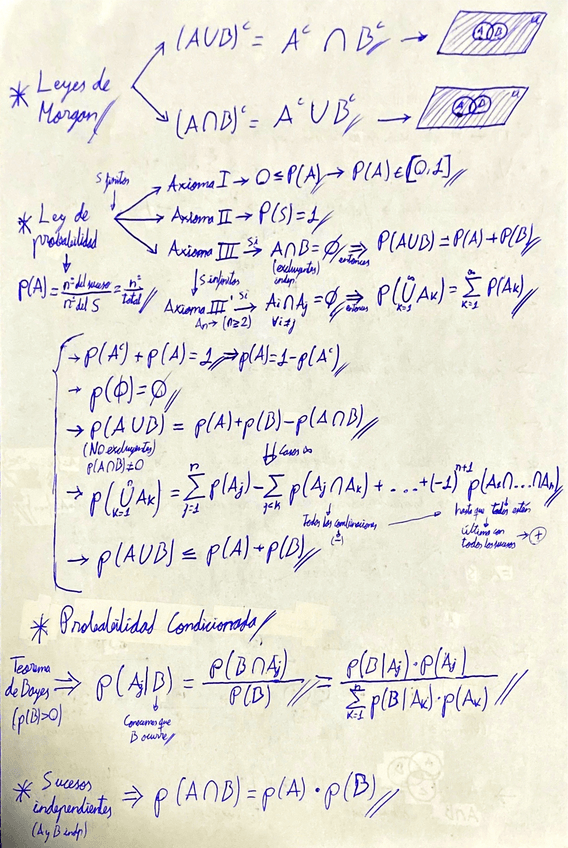 (A∪B)ᶜ = Aᶜ ∩ Bᶜ →
* Leyes de
Morgan
(A∩B)ᶜ = Aᶜ ∪ Bᶜ →
S finitos
Axioma I → 0 ≤ P(A) → P(A) ∈ [0,1]
* Ley de
probabilidad
Axioma II → P(S) = 1
Axioma III si → A∩B = ∅ ⇒ entonces P(A∪B) = P(A) + P(B)
(excluyentes)
indep.
P(A) = nº del suceso / nº del S = nº / total
S infinitos
Axioma III' si → Ai ∩ Aj = ∅ ⇒ entonces P(∪_{k=1}^{∞} Ak) = ∑_{k=1}^{∞} P(Ak)
An → (n≥2) ∀i≠j
→ p(Aᶜ) + p(A) = 1 ⇒ p(A) = 1 - p(Aᶜ)
→ p(∅) = ∅
→ p(A∪B) = p(A) + p(B) - p(A∩B)
(NO excluyentes)
p(A∩B) ≠ 0
⇓ Casos
→ p(∪_{k=1}^{n} Ak) = ∑_{j=1}^{n} p(Aj) - ∑_{j<k} p(Aj ∩ Ak) + ... + (-1)^{n+1} p(A₁∩...∩An)
Todas las combinaciones → hasta que todos estén
(-)
última con
todos los sucesos → (+)
→ p(A∪B) ≤ p(A) + p(B)
* Probabilidad Condicionada
Teorema
de Bayes ⇒ p(Aj|B) = p(B∩Aj) / P(B) = p(B|Aj)·P(Aj) / ∑_{k=1}^{n} p(B|Ak)·p(Ak)
(p(B)>0)
Conocemos que
B ocurre
* Sucesos
independientes ⇒ p(A∩B) = p(A)·p(B)
(A y B indp)